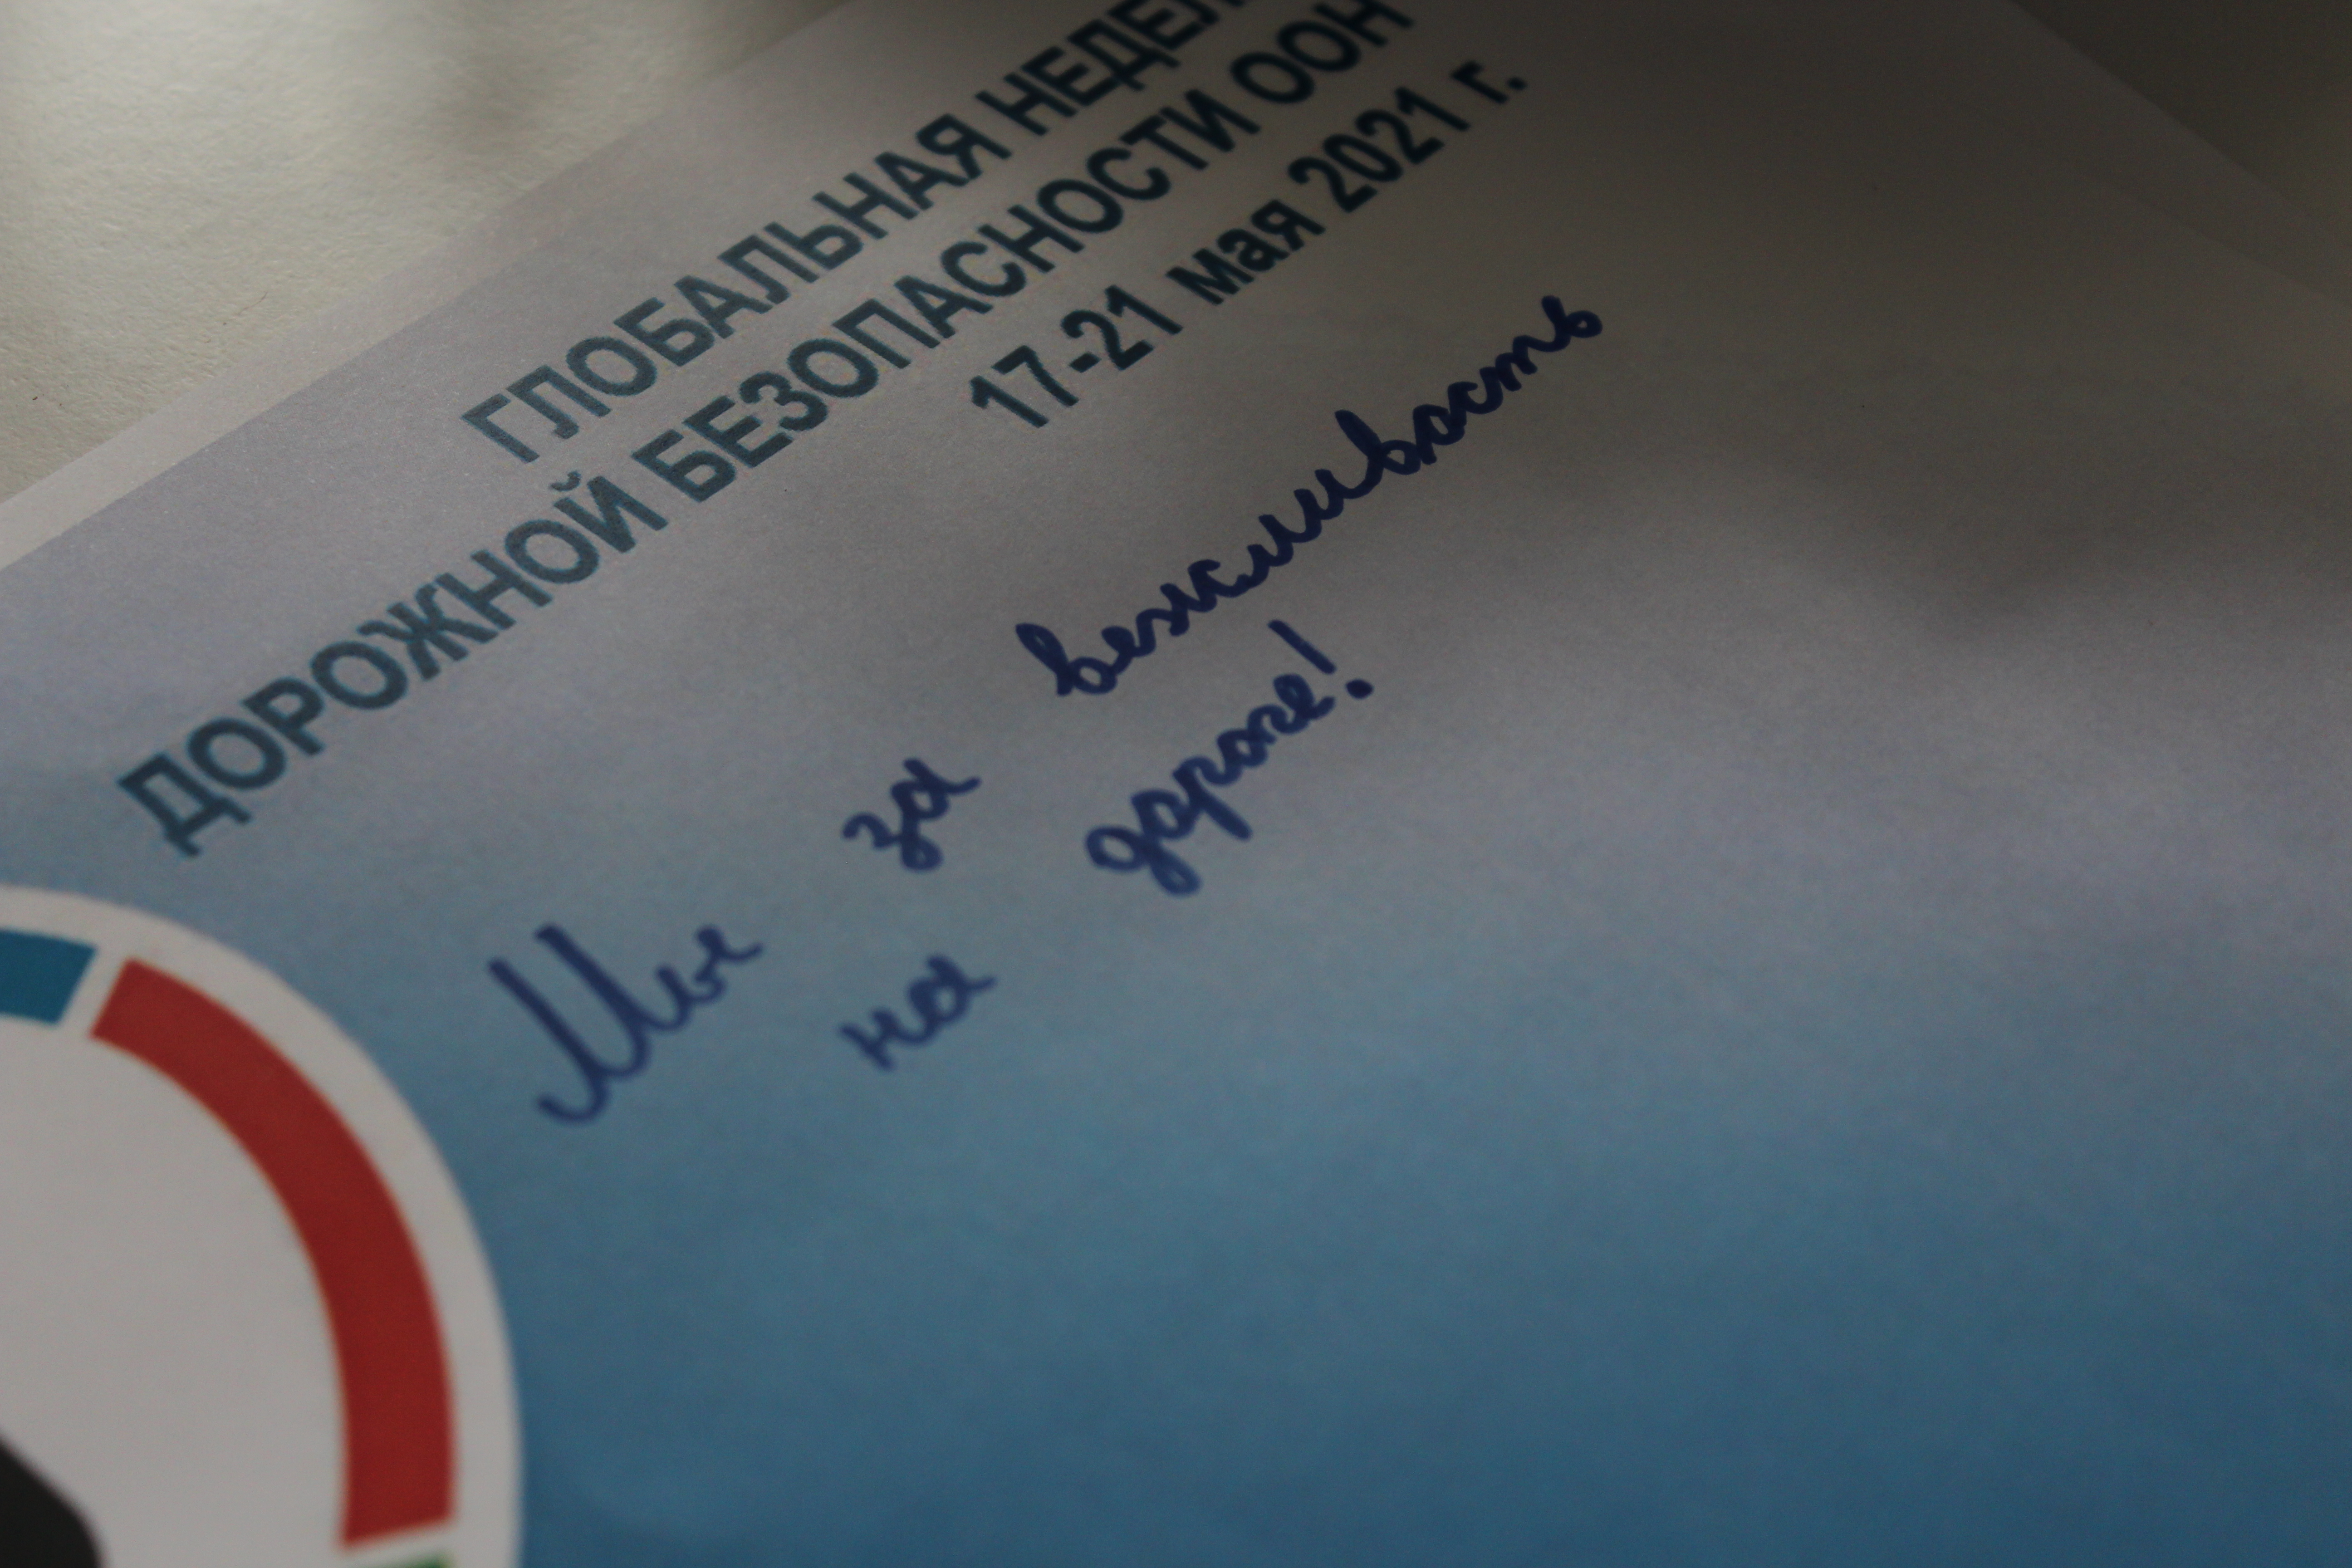 ГЛОБАЛЬНАЯ НЕДЕЛ
ДОРОЖНОЙ БЕЗОПАСНОСТИ ООН
17-21 мая 2021 г.
Мы за вежливость
на дороге!